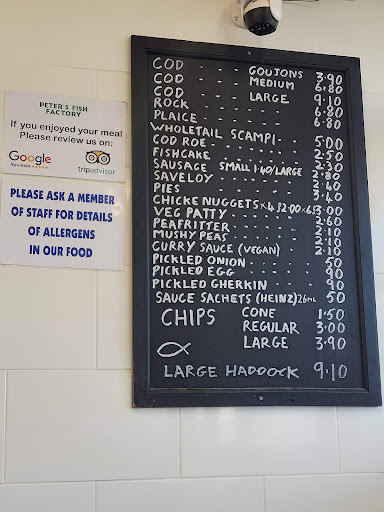 PETER'S FISH
FACTORY
If you enjoyed your meal
Please review us on:
Google
Reviews
tripadvisor
PLEASE ASK A MEMBER
OF STAFF FOR DETAILS
OF ALLERGENS
IN OUR FOOD
COD - - - GOUJONS 3.90
COD - - - MEDIUM 6.80
COD - - - LARGE 9.10
ROCK - - - - - - 6.80
PLAICE - - - - - - 6.80
WHOLETAIL SCAMPI - - 5.00
COD ROE - - - - - - 2.50
FISHCAKE - - - - - - 2.30
SAUSAGE SMALL 1.40/LARGE 2.80
SAVELOY - - - - - - 2.40
PIES - - - - - - 3.40
CHICKE NUGGETS x4 £2.00 x6 £3.00
VEG PATTY - - - - - - 2.60
PEAFRITTER - - - - - 2.10
MUSHY PEAS - - - - - 2.10
CURRY SAUCE (VEGAN) 2.10
PICKLED ONION - - - - 50
PICKLED EGG - - - - - 90
PICKLED GHERKIN - - - - 90
SAUCE SACHETS (HEINZ) 26ML 50
CHIPS CONE 1.50
REGULAR 3.00
LARGE 3.90
LARGE HADDOCK 9.10